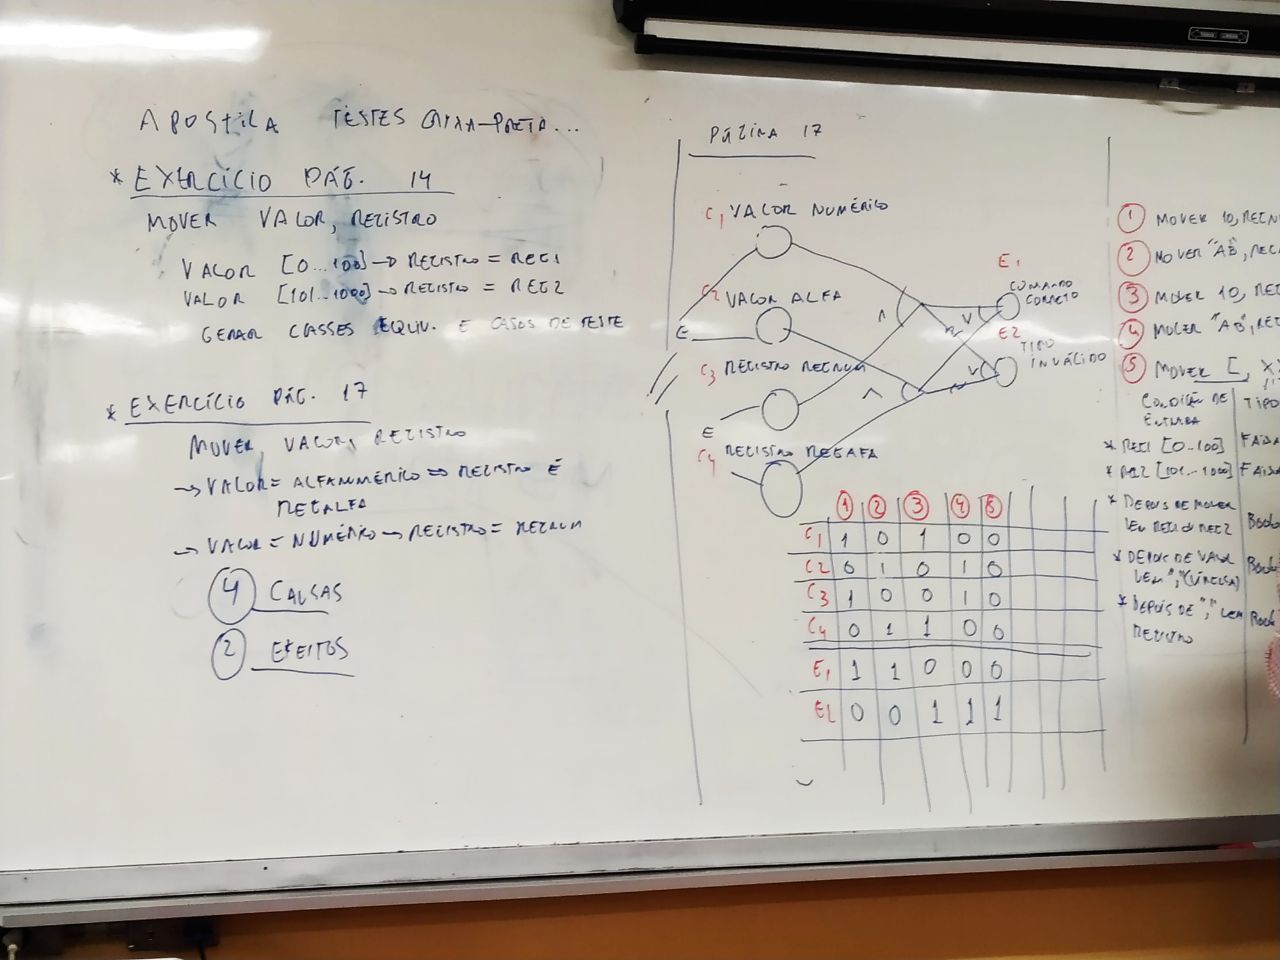 APOSTILA TESTES CAIXA-PRETA...
* EXERCÍCIO PÁG. 14
MOVER VALOR, REGISTRO
VALOR [0...100] → REGISTRO = REG1
VALOR [101...1000] → REGISTRO = REG2
GERAR CLASSES EQUIV. E CASOS DE TESTE
* EXERCÍCIO PÁG. 17
MOVER, VALOR, REGISTRO
→ VALOR = ALFANUMÉRICO → REGISTRO É
REGALFA
→ VALOR = NUMÉRICO → REGISTRO = REGNUM
4 CAUSAS
2 EFEITOS
PÁGINA 17
C1 VALOR NUMÉRICO
C2 VALOR ALFA
E
C3 REGISTRO REGNUM
E
C4 REGISTRO REGAFA
∧
∧
E1
COMANDO
CORRETO
V
E2
TIPO
INVÁLIDO
V
1 2 3 4 5
C1 1 0 1 0 0
C2 0 1 0 1 0
C3 1 0 0 1 0
C4 0 1 1 0 0
E1 1 1 0 0 0
E2 0 0 1 1 1
1 MOVER 10, REGN
2 MOVER "AB", REG
3 MOVER 10, RE
4 MOVER "AB", REG
5 MOVER [, X
CONDIÇÃO DE TIPO
ENTRADA
* REG1 [0..100] FAIXA
* REG2 [101..1000] FAIXA
* DEPOIS DE MOVER
TEM REG1 OU REG2 Boole
* DEPOIS DE VALOR
TEM "," (VÍRGULA) Boole
* DEPOIS DE "," TEM Boole
REGISTRO